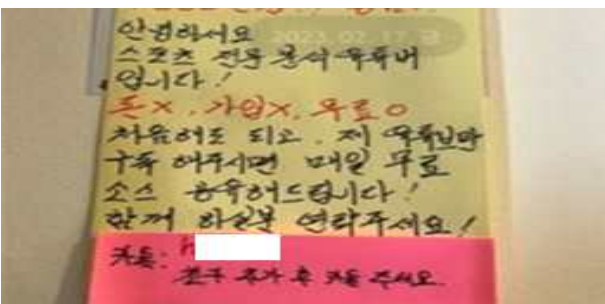 안녕하세요 2023. 02. 17. 금
스포츠 전문 분석 유튜버
입니다!
돈X, 가입X, 무료O
처음이도 되고, 제 유튜브만
구독 해주시면 매일 무료
소스 공유해드립니다!
함께 하실분 연락주세요!
카톡: h
친구 추가 후 카톡 주세요